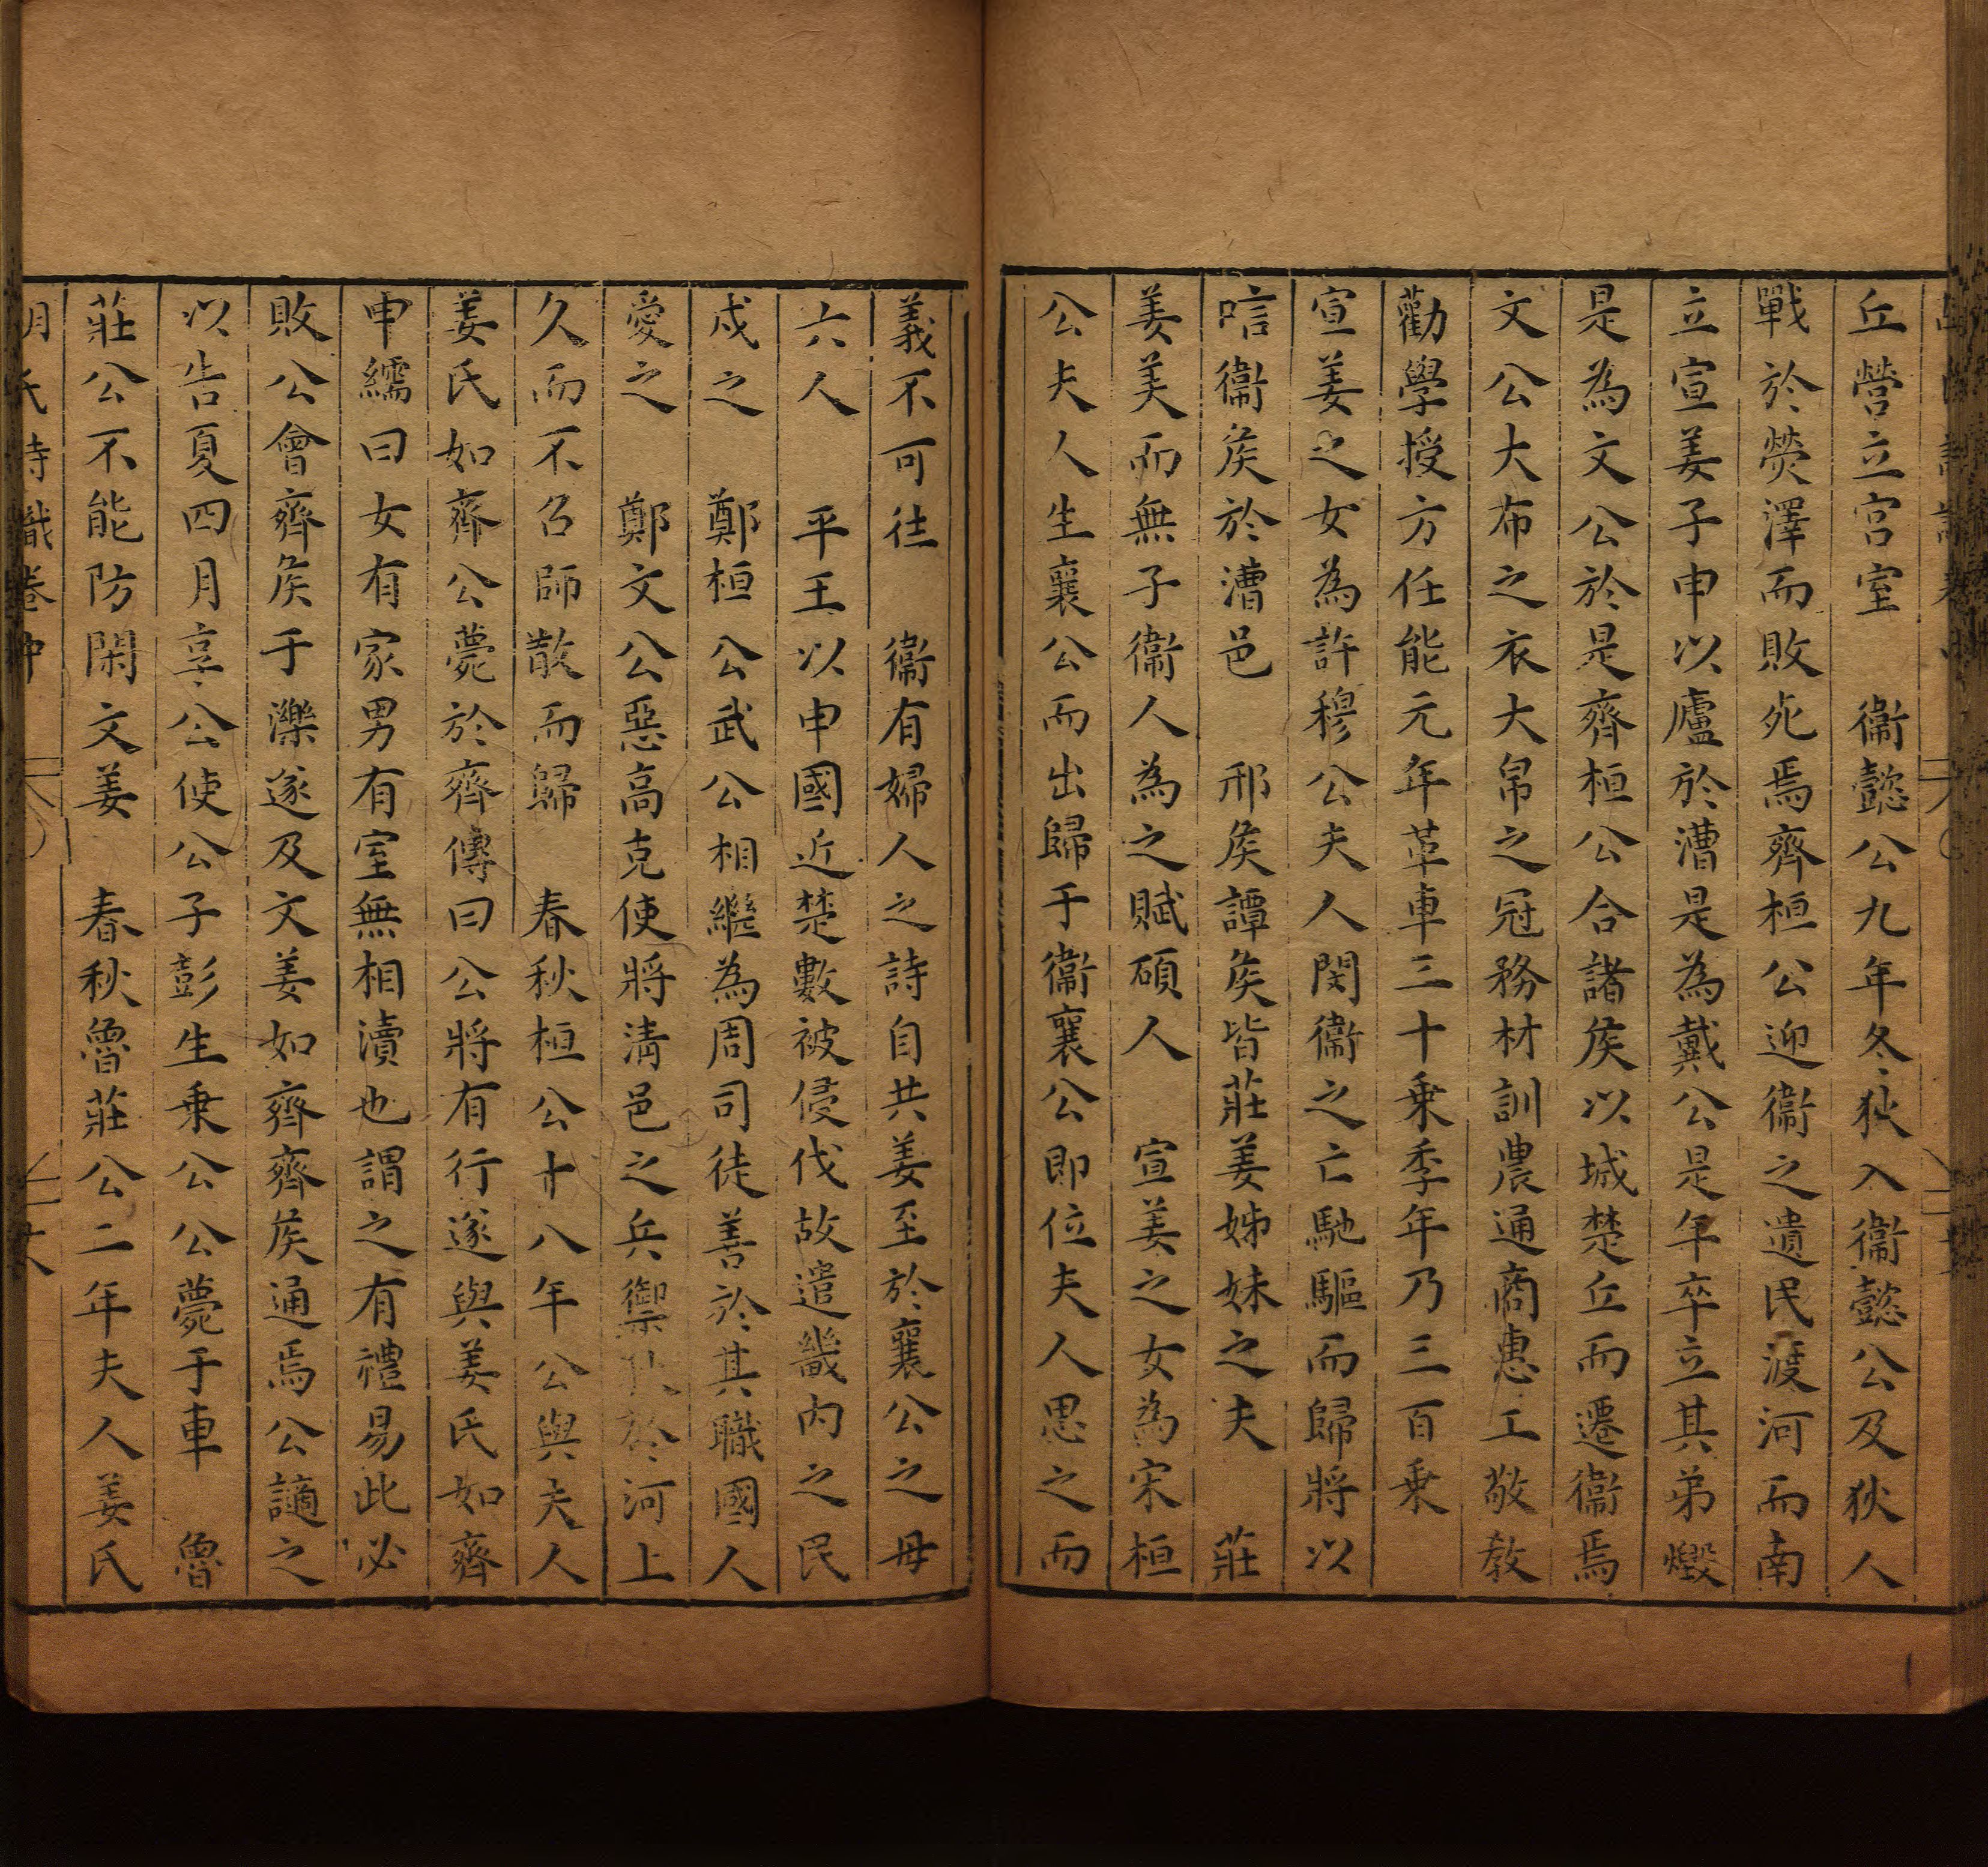 丘營立宮室　衞懿公九年冬狄入衞懿公及狄人
戰於熒澤而敗死焉齊桓公迎衞之遺民渡河而南
立宣姜子申以廬於漕是為戴公是年卒立其弟燬
是為文公於是齊桓公合諸侯以城楚丘而遷衞焉
文公大布之衣大帛之冠務材訓農通商惠工敬教
勸學授方任能元年革車三十乗季年乃三百乗
宣姜之女為許穆公夫人閔衞之亡馳驅而歸將以
唁衞侯於漕邑　邢侯譚侯皆莊姜姊妹之夫　莊
姜美而無子衞人為之賦碩人　宣姜之女為宋桓
公夫人生襄公而出歸于衞襄公即位夫人思之而
義不可往　衞有婦人之詩自共姜至於襄公之母
六人　平王以申國近楚數被侵伐故遣畿内之民
戍之　鄭桓公武公相繼為周司徒善於其職國人
愛之　鄭文公惡高克使將清邑之兵禦狄於河上
久而不召師散而歸　春秋桓公十八年公與夫人
姜氏如齊公薨於齊傳曰公將有行遂與姜氏如齊
申繻曰女有家男有室無相瀆也謂之有禮易此必
敗公會齊侯于濼遂及文姜如齊齊侯通焉公謫之
以告夏四月享公使公子彭生乗公公薨于車　魯
莊公不能防閑文姜　春秋魯莊公二年夫人姜氏